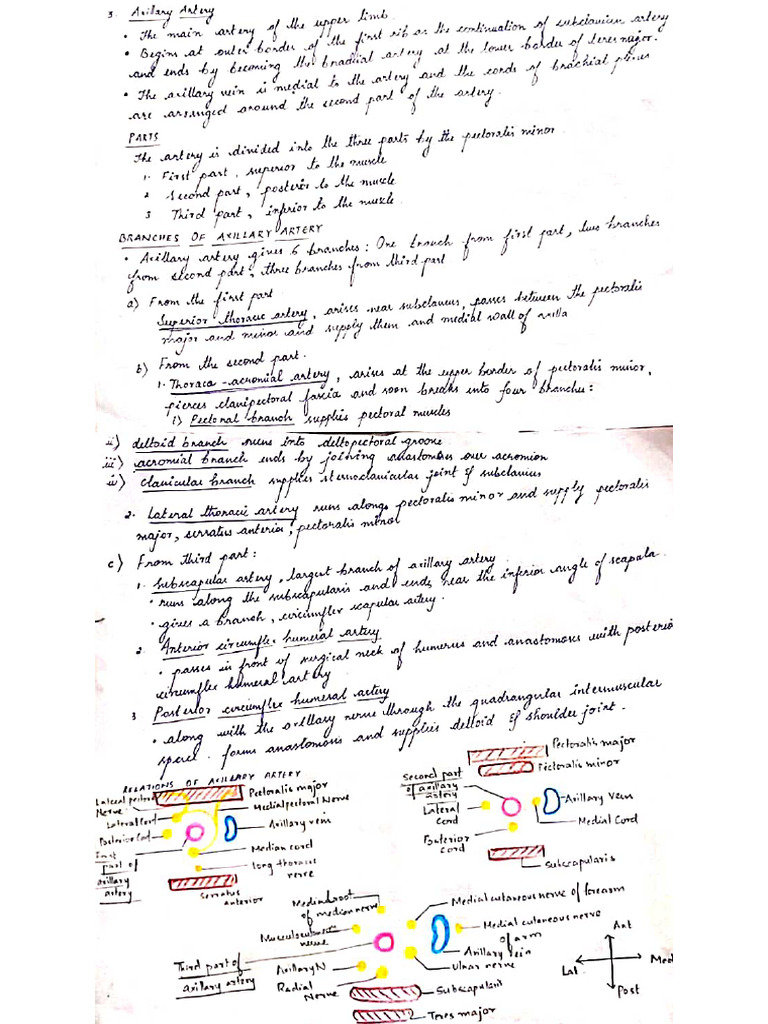 3. Axillary Artery
• The main artery of the upper limb.
• Begins at outer border of the first rib as the continuation of subclavian artery
and ends by becoming the brachial artery at the lower border of teres major.
• The axillary vein is medial to the artery and the cords of brachial plexus
are arranged around the second part of the artery.
PARTS
The artery is divided into the three parts by the pectoralis minor
1. First part, superior to the muscle
2 Second part, posterior to the muscle
3 Third part, inferior to the muscle.
BRANCHES OF AXILLARY ARTERY
• Axillary artery gives 6 branches: One branch from first part, two branches
from second part, three branches from third part
a) From the first part
Superior thoracic artery, arises near subclavius, passes between the pectoralis
major and minor and supply them and medial wall of axilla
b) From the second part.
1. Thoraco-acromial artery, arises at the upper border of pectoralis minor,
pierces clavipectoral fascia and soon breaks into four branches:
i) Pectoral branch supplies pectoral muscles
ii) deltoid branch runs into deltopectoral groove
iii) acromial branch ends by joining anastomoses over acromion
iv) clavicular branch supplies sternoclavicular joint & subclavius
2. Lateral thoracic artery runs along pectoralis minor and supply pectoralis
major, serratus anterior, pectoralis minor
c) From third part:
1. Subscapular artery, largest branch of axillary artery
• runs along the subscapularis and ends near the inferior angle of scapula.
• gives a branch, circumflex scapular artery.
2. Anterior circumflex humeral artery
• passes in front of surgical neck of humerus and anastomoses with posterior
circumflex humeral artery
3 Posterior circumflex humeral artery
• along with the axillary nerve through the quadrangular intermuscular
space. forms anastomosis and supplies deltoid & shoulder joint.
RELATIONS OF AXILLARY ARTERY
Lateral pectoral
Nerve
Pectoralis major
Medial pectoral Nerve
Lateral cord
Posterior Cord
Axillary vein
Median cord
First
part of
axillary
artery
long thoracic
nerve
Serratus
anterior
Pectoralis major
Pectoralis minor
Second part
of axillary
artery
Lateral
cord
Axillary Vein
Medial Cord
Posterior
cord
Subscapularis
Medial root
of median nerve
Medial cutaneous nerve of forearm
Musculocutaneous
nerve
Medial cutaneous nerve
of arm
Third part of
axillary artery
Axillary vein
Axillary N
ulnar nerve
Radial
Nerve
Subscapularis
Teres major
Ant
Lat
Med
Post